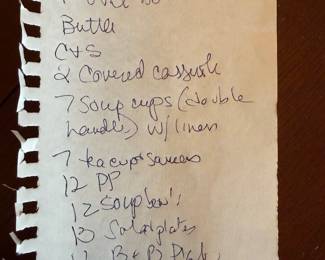 Butter
C+S
2 Covered casserole
7 Soup cups (double
handles) w/ liners
7 teacup + saucers
12 PP
12 Soup bowls
13 Salad plates
B + B Plates